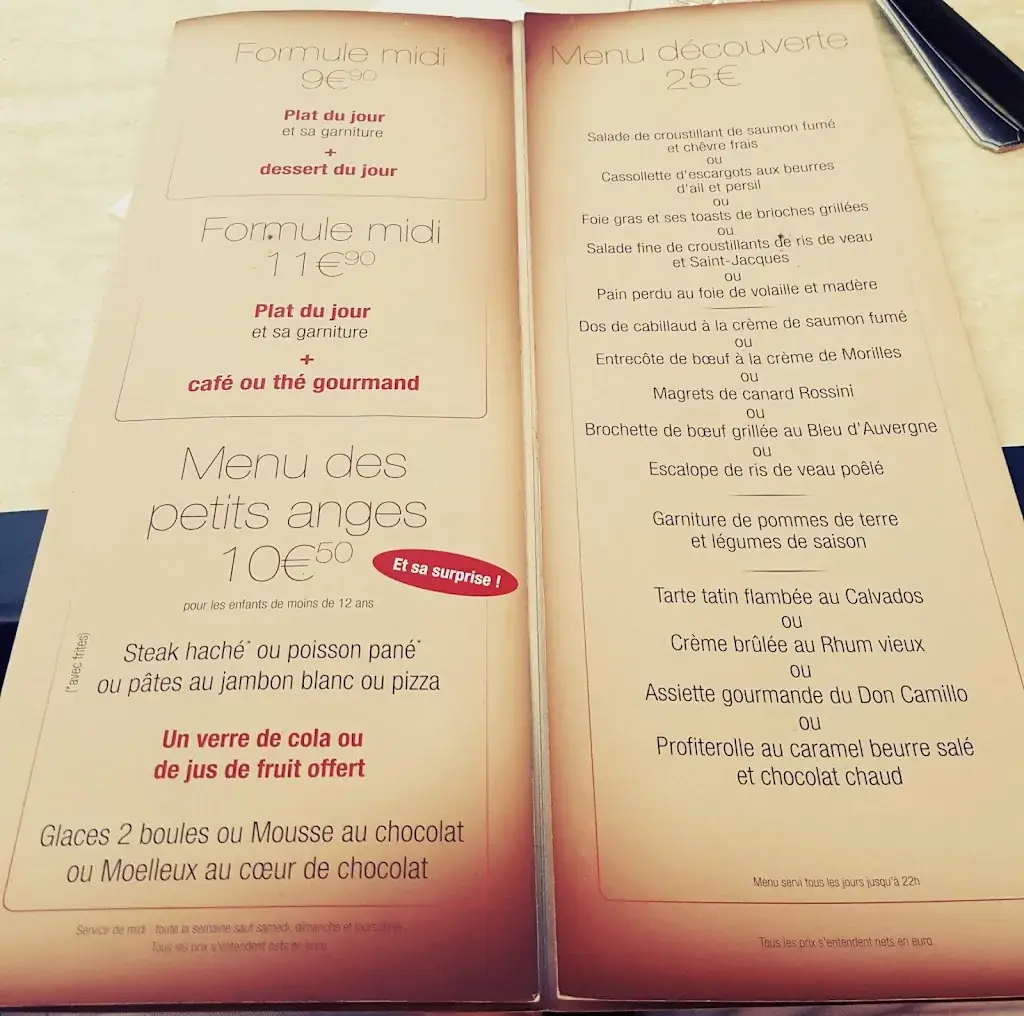 Formule midi
9€90
Plat du jour
et sa garniture
+
dessert du jour
Formule midi
11€90
Plat du jour
et sa garniture
+
café ou thé gourmand
Menu des
petits anges
10€50
Et sa surprise !
pour les enfants de moins de 12 ans
(*avec frites)
Steak haché* ou poisson pané*
ou pâtes au jambon blanc ou pizza
Un verre de cola ou
de jus de fruit offert
Glaces 2 boules ou Mousse au chocolat
ou Moelleux au cœur de chocolat
Service de midi : toute la semaine sauf samedi, dimanche et jours
Tous les prix s'entendent nets en euro
Menu découverte
25€
Salade de croustillant de saumon fumé
et chêvre frais
ou
Cassollette d'escargots aux beurres
d'ail et persil
ou
Foie gras et ses toasts de brioches grillées
ou
Salade fine de croustillants de ris de veau
et Saint-Jacques
ou
Pain perdu au foie de volaille et madère
Dos de cabillaud à la crème de saumon fumé
ou
Entrecôte de bœuf à la crème de Morilles
ou
Magrets de canard Rossini
ou
Brochette de bœuf grillée au Bleu d'Auvergne
ou
Escalope de ris de veau poêlé
Garniture de pommes de terre
et légumes de saison
Tarte tatin flambée au Calvados
ou
Crème brûlée au Rhum vieux
ou
Assiette gourmande du Don Camillo
ou
Profiterolle au caramel beurre salé
et chocolat chaud
Menu servi tous les jours jusqu'à 22h
Tous les prix s'entendent nets en euro